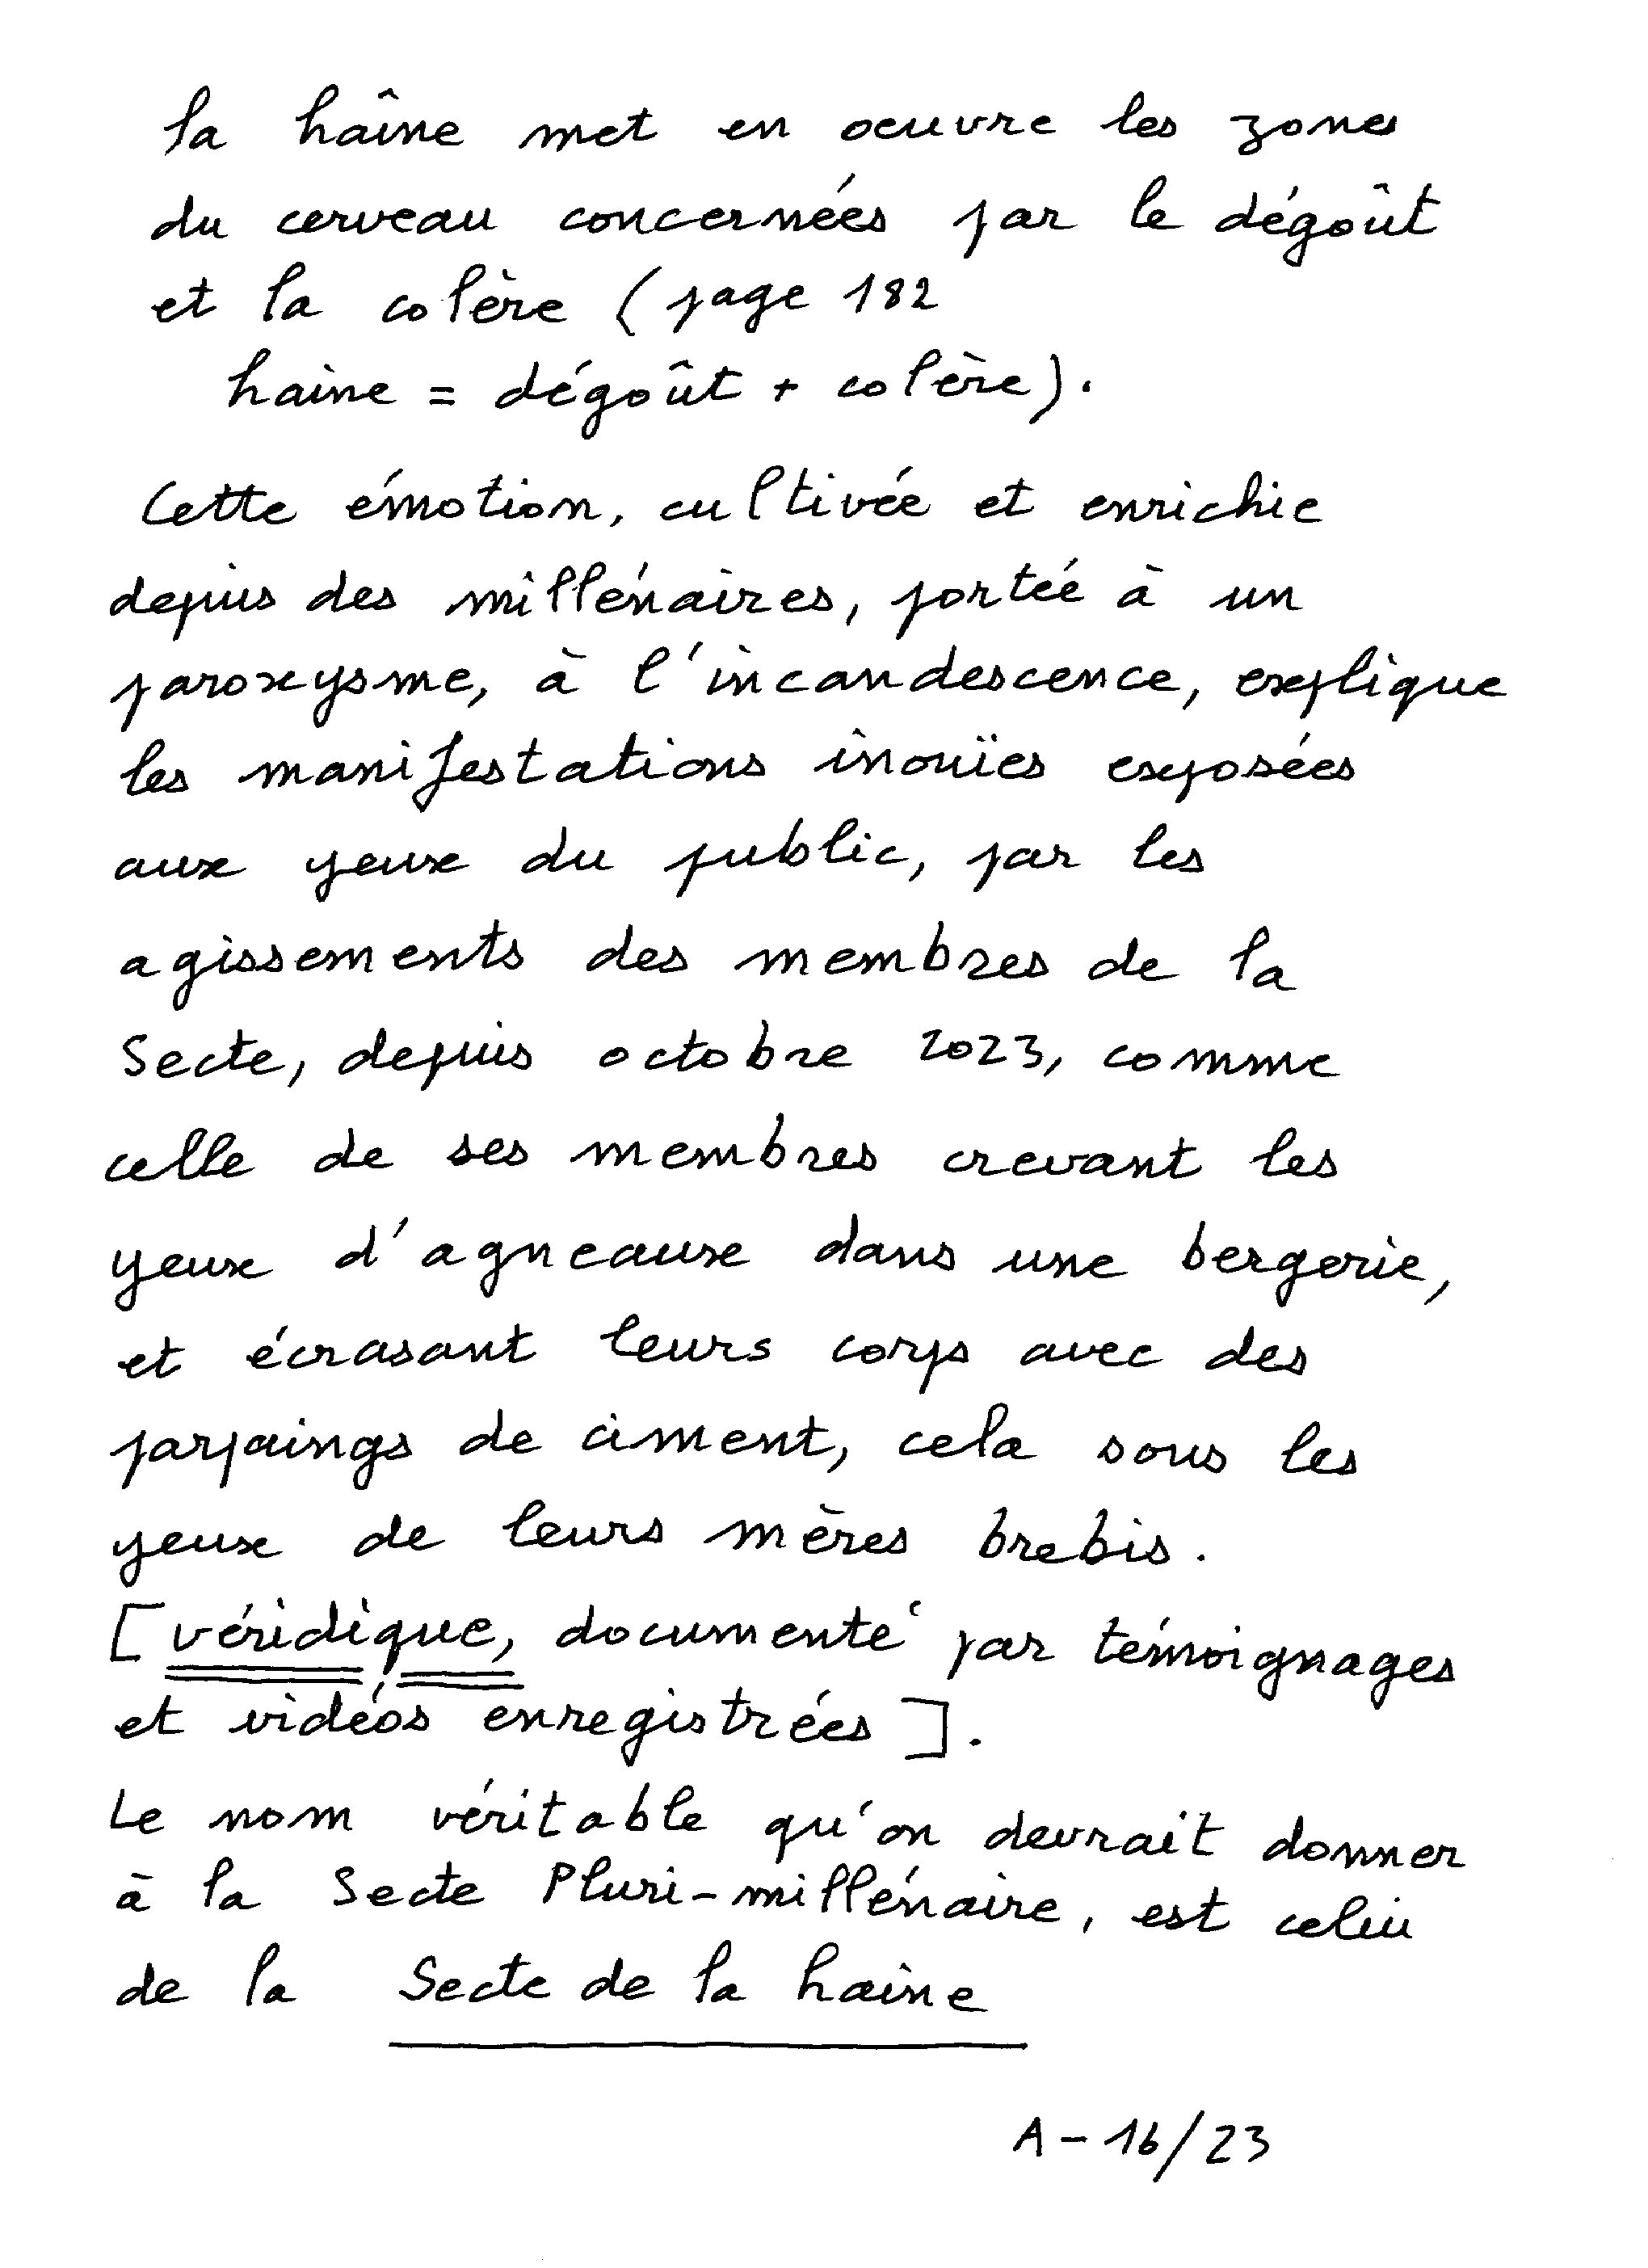 la haîne met en oeuvre les zones
du cerveau concernées par le dégoût
et la colère (page 182
haine = dégoût + colère).
Cette émotion, cultivée et enrichie
depuis des millénaires, portée à un
paroxysme, à l'incandescence, explique
les manifestations inouïes exposées
aux yeux du public, par les
agissements des membres de la
Secte, depuis octobre 2023, comme
celle de ses membres crevant les
yeux d'agneaux dans une bergerie,
et écrasant leurs corps avec des
parpaings de ciment, cela sous les
yeux de leurs mères brebis.
[véridique, documenté par témoignages
et vidéos enregistrées].
Le nom véritable qu'on devrait donner
à la Secte Pluri-millénaire, est celui
de la Secte de la haine
A - 16/23